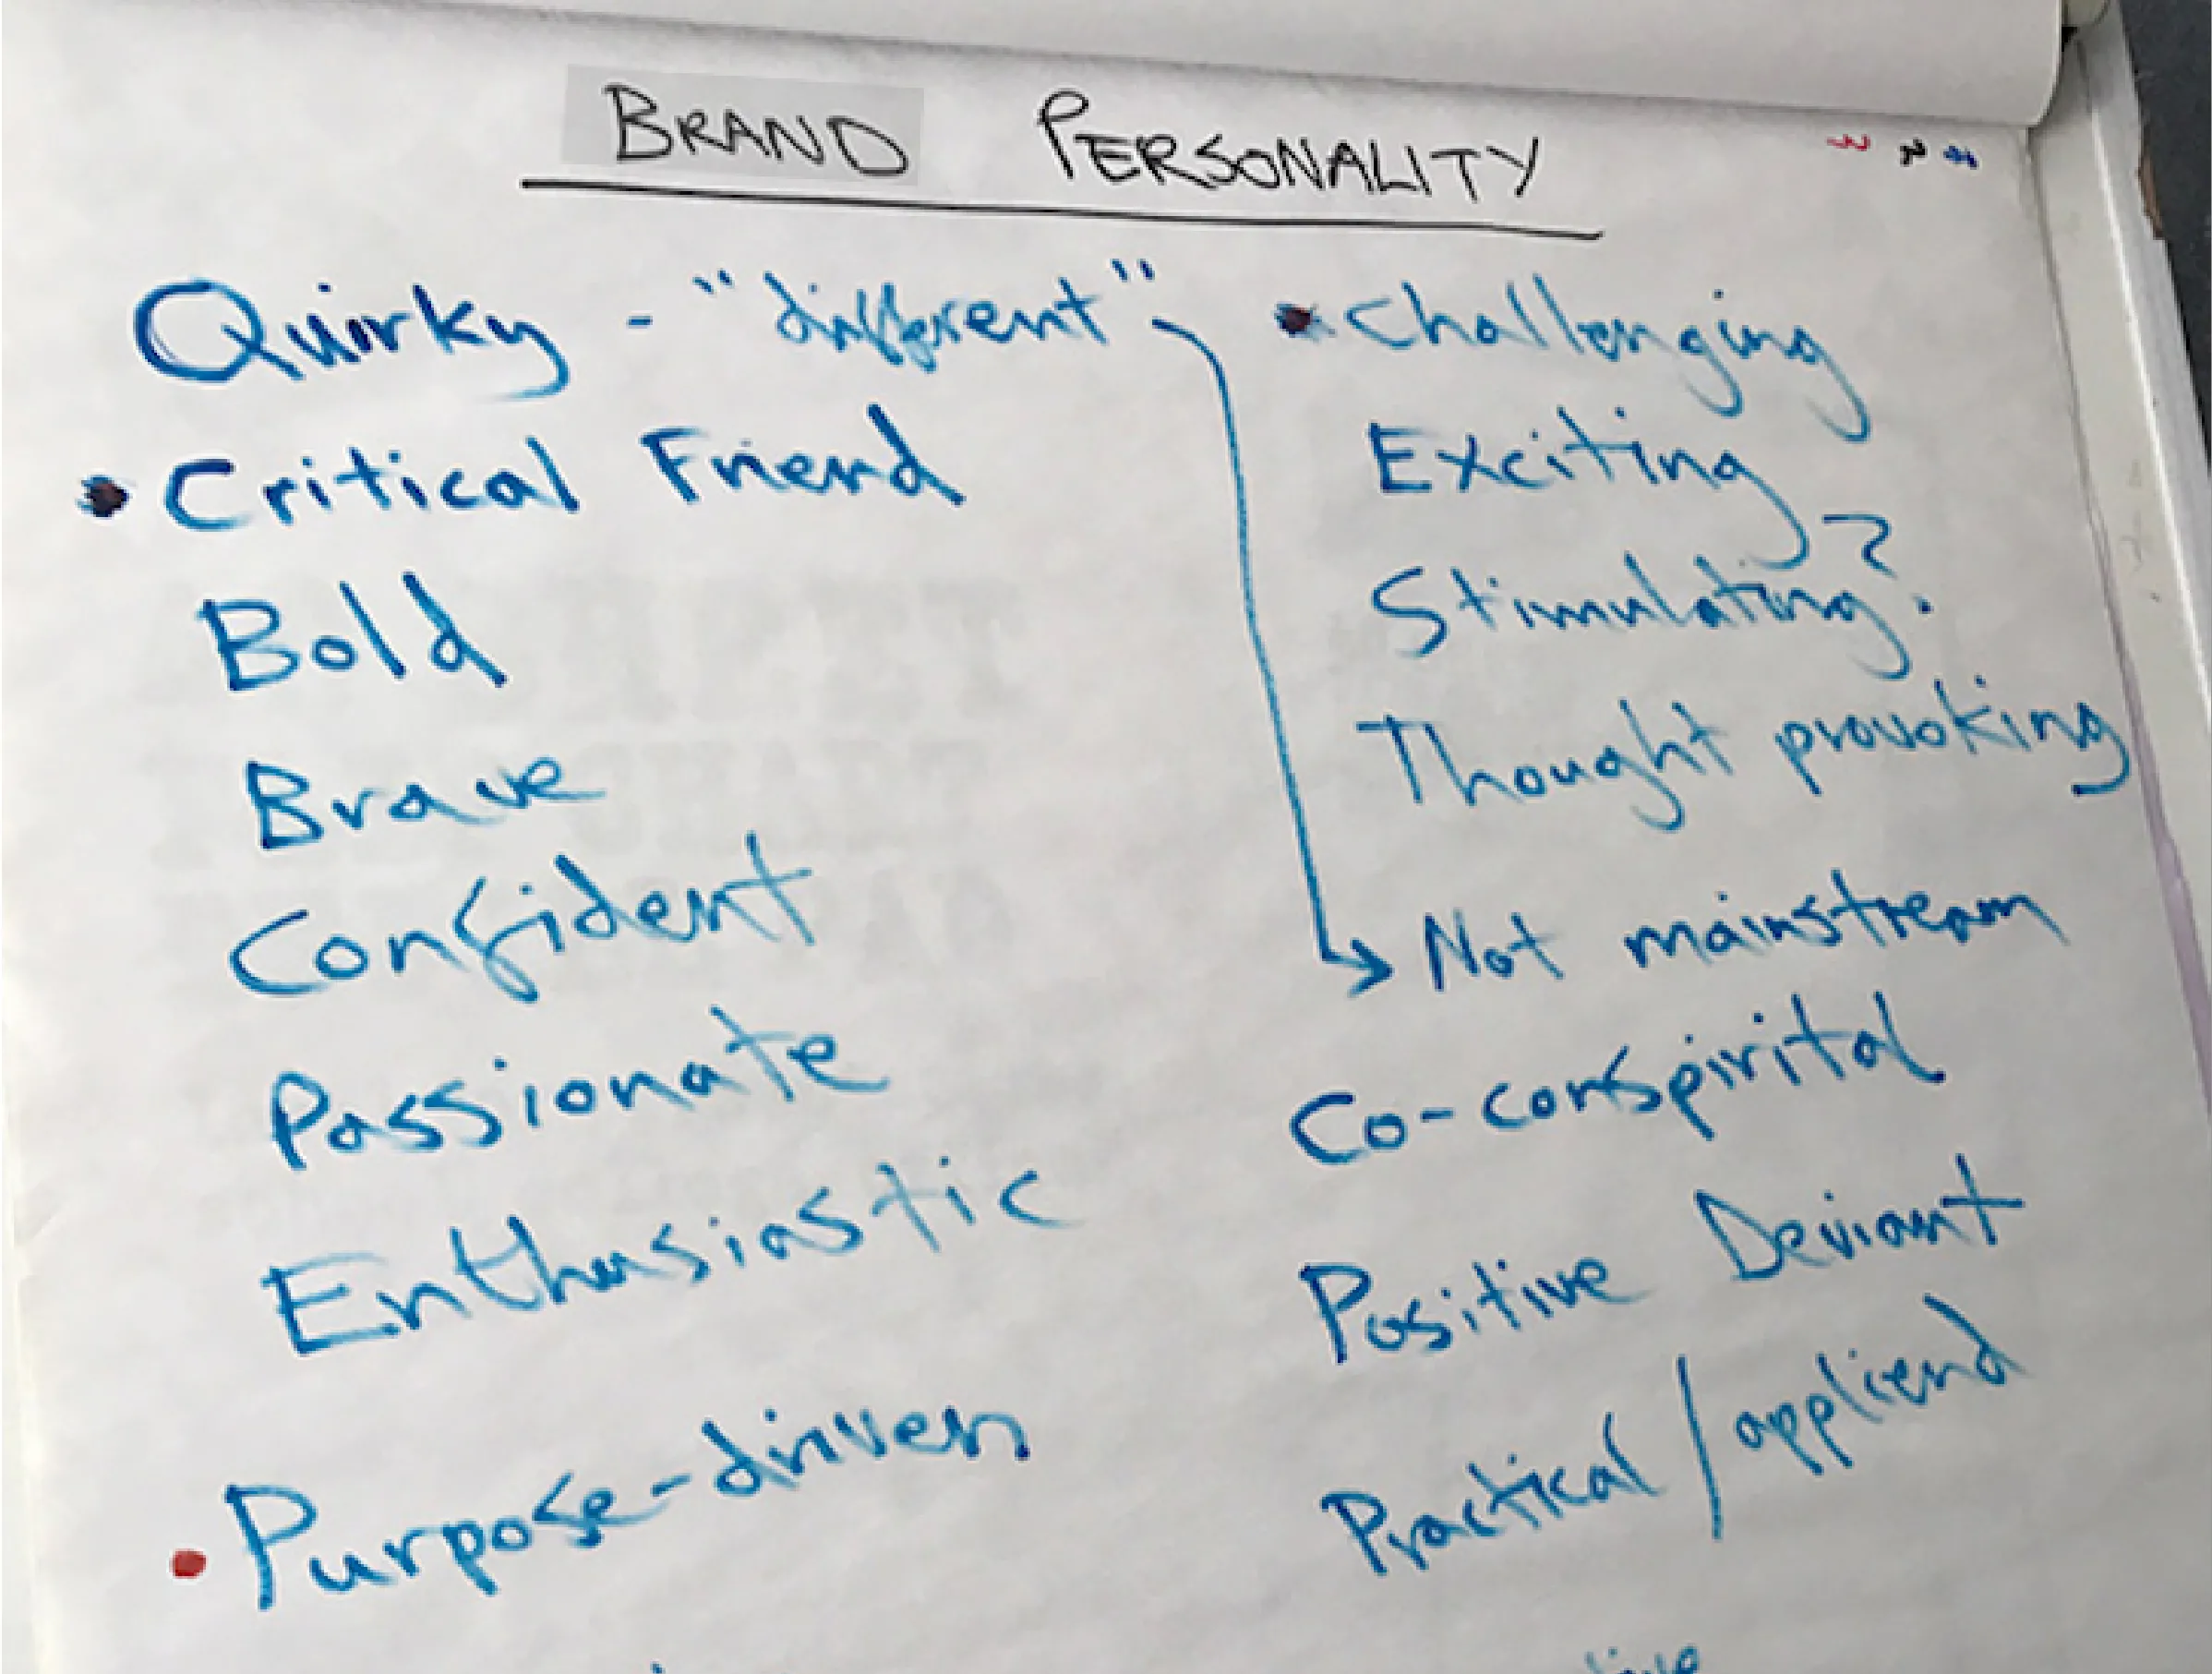 BRAND PERSONALITY
Quirky - "different"
• Critical Friend
Bold
Brave
Confident
Passionate
Enthusiastic
• Purpose-driven
• Challenging
Exciting
Stimulating?
Thought provoking
→ Not mainstream
Co-conspirital
Positive Deviant
Practical / appliend